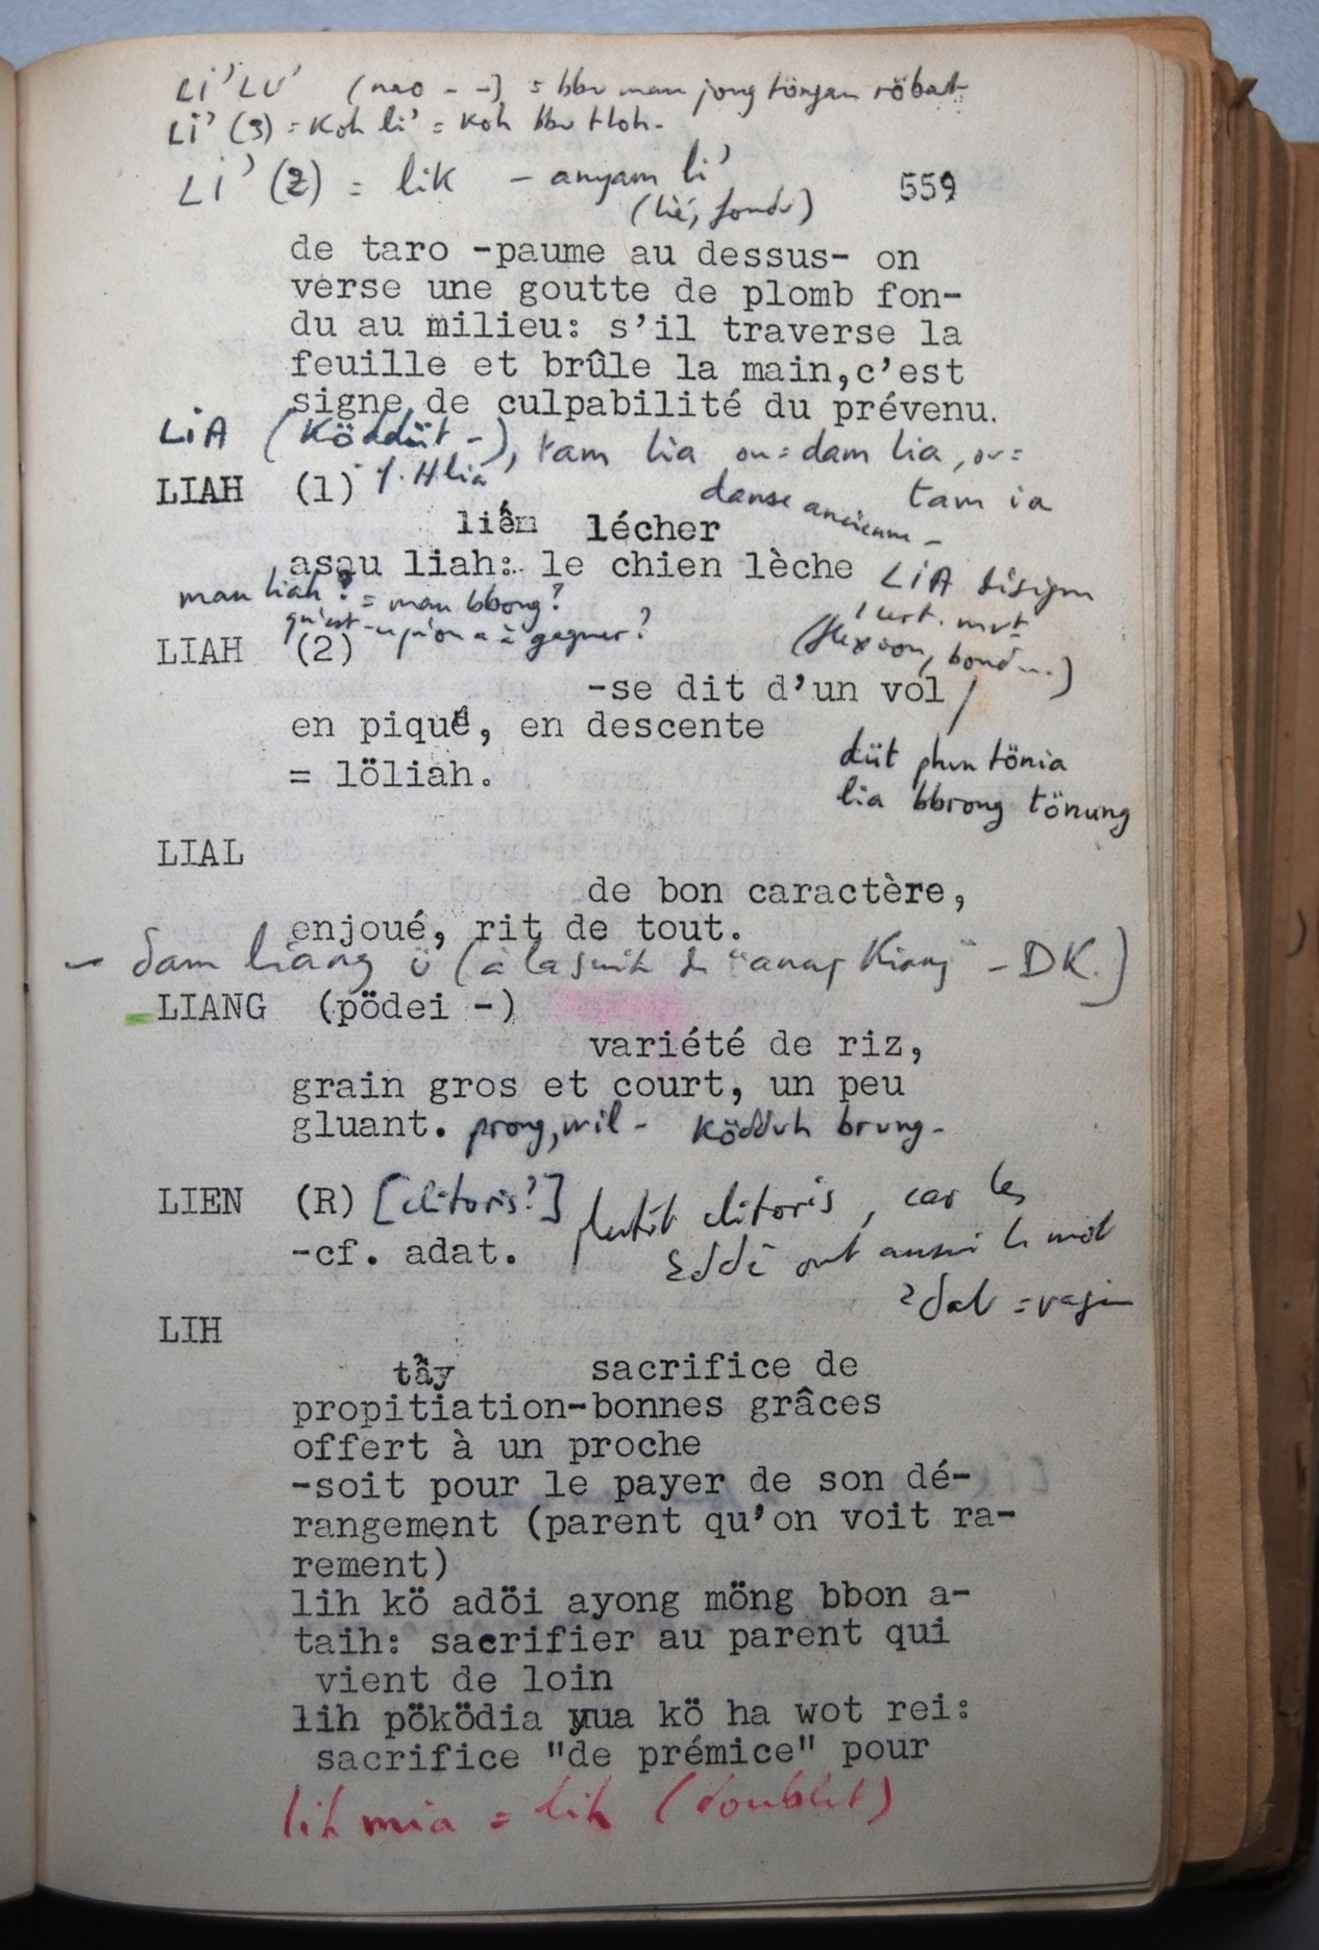 LI' LU' (nao - -) = bbu man jong töngan röbat
LI' (3) = Koh li' = Koh bbu tloh.
LI' (2) = lik - anyam li'
559
(lié, fondu)
de taro -paume au dessus- on
verse une goutte de plomb fon-
du au milieu: s'il traverse la
feuille et brûle la main,c'est
signe de culpabilité du prévenu.
LIA ( -), tam lia ou = dam lia, ou =
LIAH (1) Hlia danse ancienne - tam ia
liêm lécher
asau liah: le chien lèche LIA
man liah? = man bbong?
qu'est-ce qu'on a à gagner?
LIAH (2) (flexion, bond...)
-se dit d'un vol
en piqué, en descente
= löliah.
düt phun tönia
lia bbrong tönung
LIAL
de bon caractère,
enjoué, rit de tout.
- dam liang ü (à la suite de " " - DK.)
LIANG (pödei -)
variété de riz,
grain gros et court, un peu
gluant. prong, wil - ködduh brung -
LIEN (R) [clitoris?] plutôt clitoris, car les
-cf. adat. ont aussi le mot
= vagin
LIH
tẩy sacrifice de
propitiation-bonnes grâces
offert à un proche
-soit pour le payer de son dé-
rangement (parent qu'on voit ra-
rement)
lih kö adöi ayong möng bbon a-
taih: sacrifier au parent qui
vient de loin
lih pöködia yua kö ha wot rei:
sacrifice "de prémice" pour
lih mia = lih (doublet)